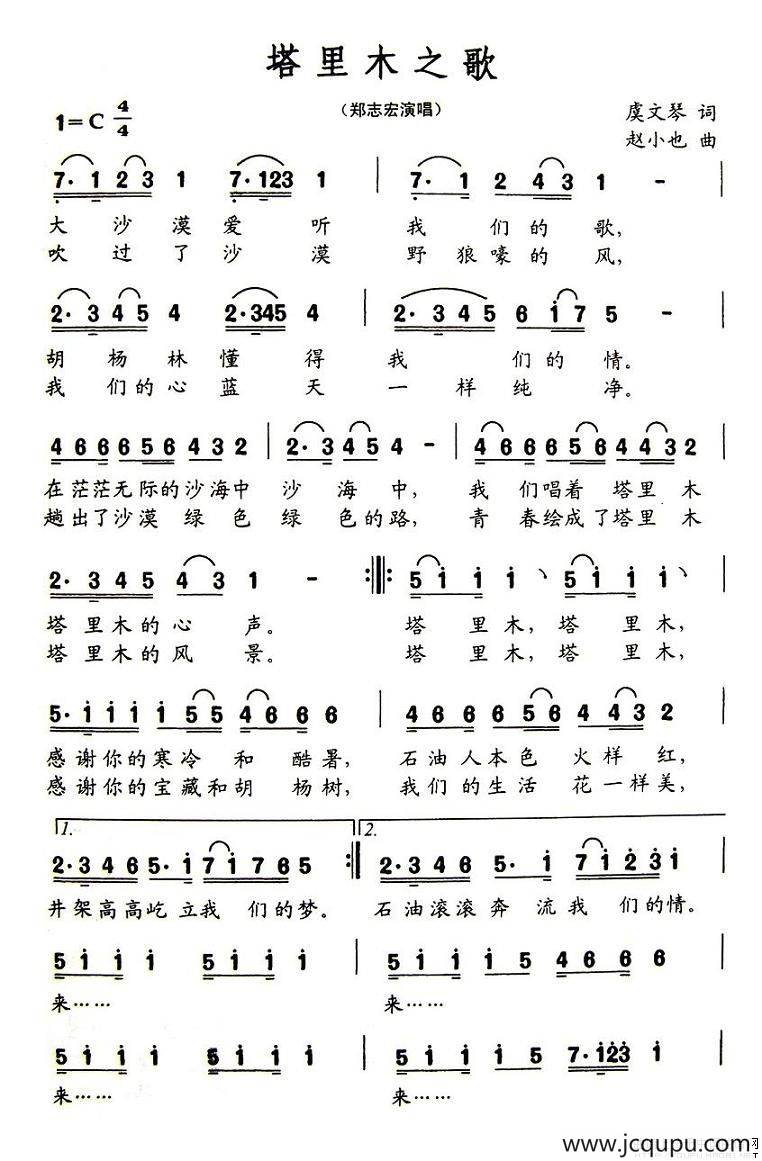 塔里木之歌
（郑志宏演唱）
1=C 4/4
虞文琴 词
赵小也 曲
7· 1 2 3 1 7·123 1 | 7· 1 2 4 3 1 - |
大沙漠爱听 我们的歌,
吹过了沙漠 野狼嚎的风,
2· 3 4 5 4 2·345 4 | 2· 3 4 5 6 i 7 5 - |
胡杨林懂得我们的情。
我们的心蓝天一样纯净。
4 6 6 6 5 6 4 3 2 | 2· 3 4 5 4 - | 4 6 6 6 5 6 4 4 3 2 |
在茫茫无际的沙海中 沙海中, 我们唱着塔里木
趟出了沙漠绿色绿色的路, 青春绘成了塔里木
2· 3 4 5 4 3 1 - :||: 5 i i i 5 i i i |
塔里木的心声。 塔里木, 塔里木,
塔里木的风景。 塔里木, 塔里木,
5· i i i i 5 5 4 6 6 6 | 4 6 6 6 4 4 3 2 |
感谢你的寒冷和酷暑, 石油人本色火样红,
感谢你的宝藏和胡杨树, 我们的生活花一样美,
1. 2.
2· 3 4 6 5· i 7 i 7 6 5 :|| 2· 3 4 6 5· i 7 i 2 3 i |
井架高高屹立我们的梦。 石油滚滚奔流我们的情。
5 i i i 5 i i i | 5 i i i 4 6 6 6 |
来…… 来……
5 i i i 5 i i i | 5 i i i 5 7·i23 i |
来…… 来……
www.jcqupu.com